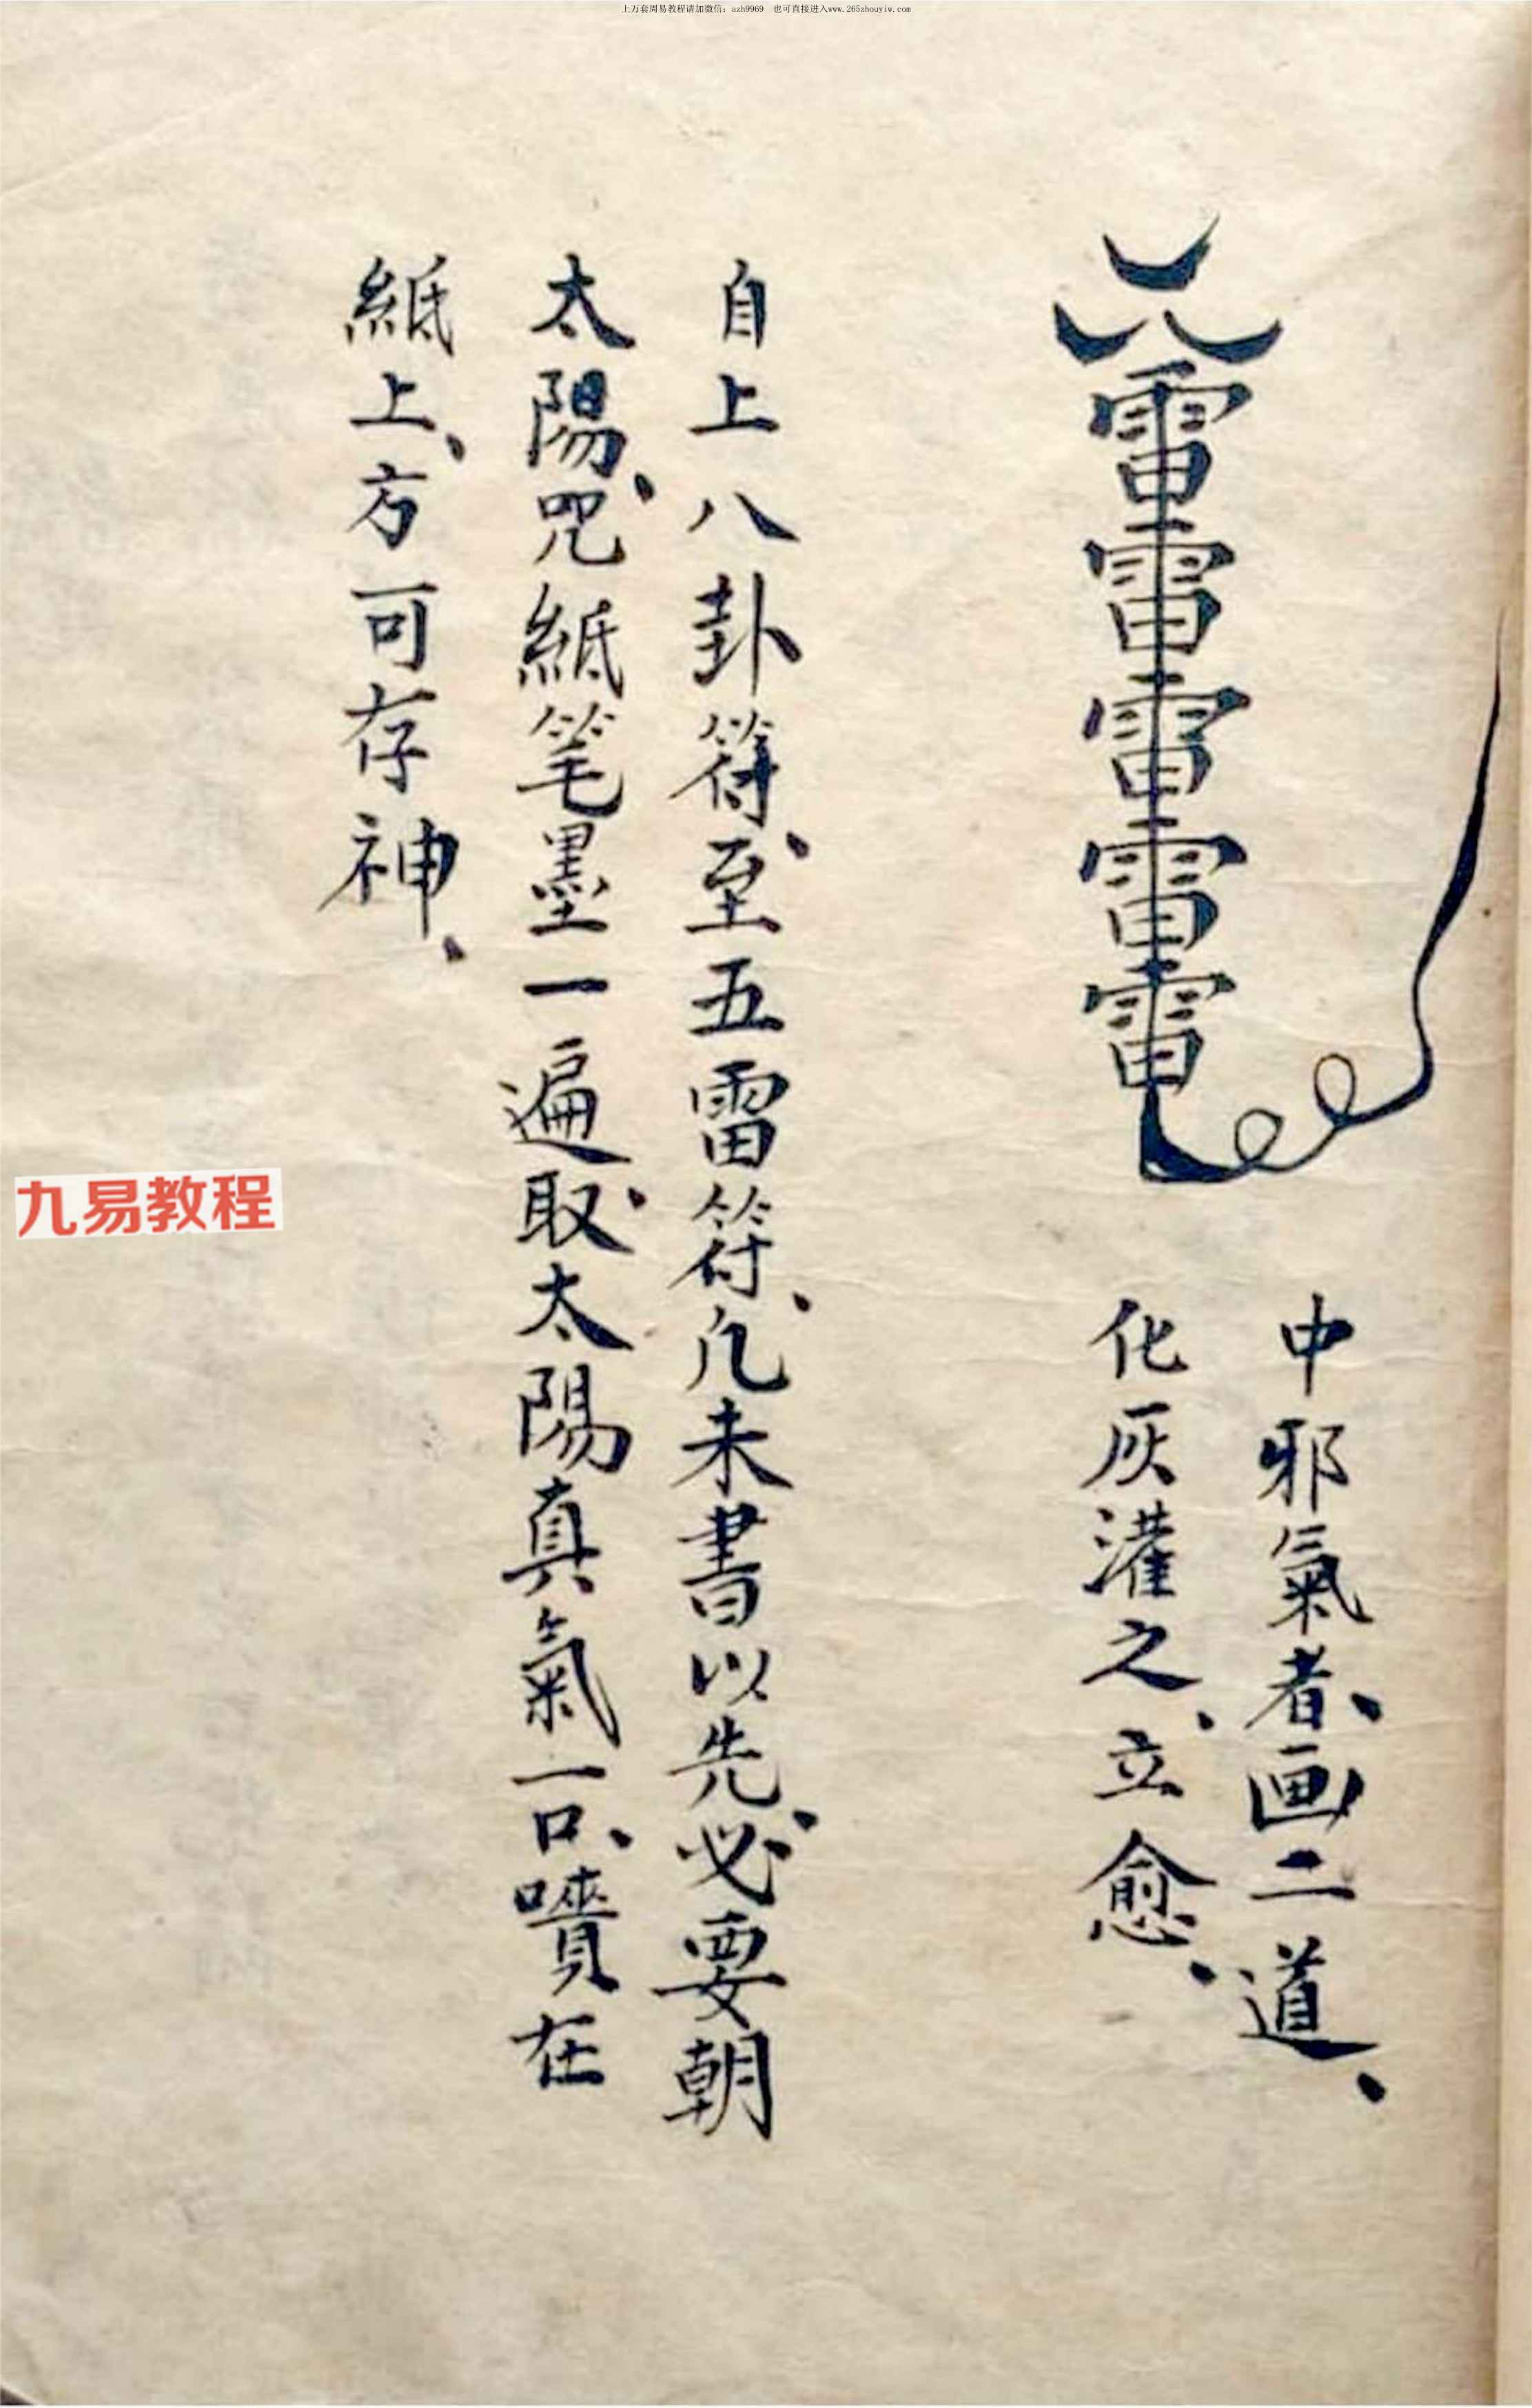 上万套周易教程请加微信：azh9969　也可直接进入www.265zhouyiw.com
雷雷雷雷雷
中邪氣者、画二道、
化灰灌之、立愈、
自上八卦符、至五雷符、凡未書以先、必要朝
太陽、咒紙笔墨一遍、取太陽真氣一口、噴在
紙上、方可存神、
九易教程